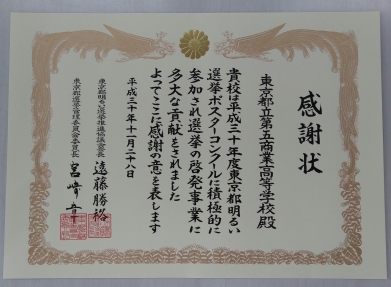 感謝状
東京都立第五商業高等学校殿
貴校は平成三十年度東京都明るい
選挙ポスターコンクールに積極的に
参加され選挙の啓発事業に
多大な貢献をされました
よってここに感謝の意を表します
平成三十年十一月二十八日
東京都明るい選挙推進協議会会長
遠藤勝裕
東京都選挙管理委員会委員長
宮崎章